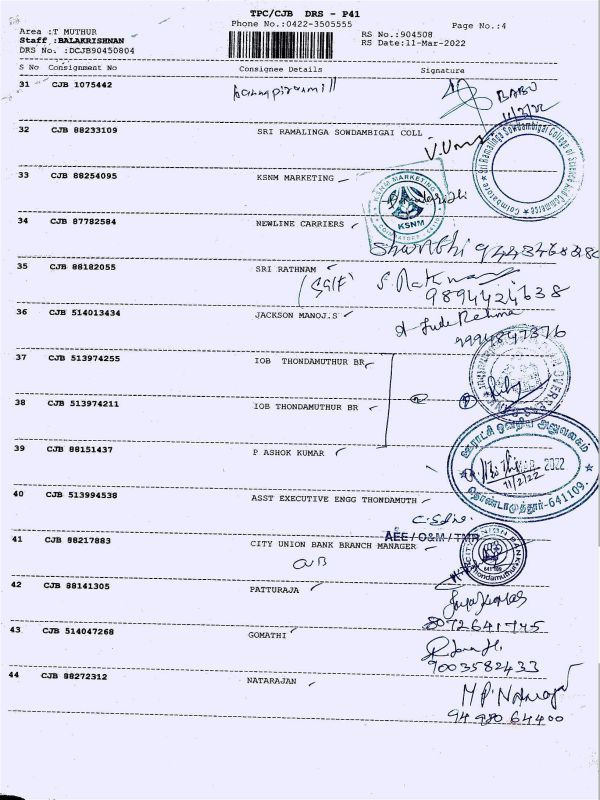 TPC/CJB DRS - P41
Phone No.:0422-3505555
Page No.:4
Area :T MUTHUR
Staff :BALAKRISHNAN
DRS No. :DCJB90450804
RS No.:904508
RS Date:11-Mar-2022
S No Consignment No Consignee Details Signature
31 CJB 1075442
BABU
11/3/22
32 CJB 88233109 SRI RAMALINGA SOWDAMBIGAI COLL
Sri Ramalinga Sowdambigai College of Science And Commerce
Coimbatore
33 CJB 88254095 KSNM MARKETING
KSNM MARKETING
KSNM
34 CJB 87782584 NEWLINE CARRIERS
35 CJB 88182055 SRI RATHNAM
(Self)
9894424638
36 CJB 514013434 JACKSON MANOJ.S
9994847376
37 CJB 513974255 IOB THONDAMUTHUR BR
38 CJB 513974211 IOB THONDAMUTHUR BR
39 CJB 88151437 P ASHOK KUMAR
ஊராட்சி ஒன்றிய அலுவலகம்
2022
11/2/22
தொண்டாமுத்தூர்-641109.
40 CJB 513994538 ASST EXECUTIVE ENGG THONDAMUTH
AEE / O&M / TMR
41 CJB 88217883 CITY UNION BANK BRANCH MANAGER
CUB
42 CJB 88141305 PATTURAJA
Jayakumar
8072641745
43 CJB 514047268 GOMATHI
9003582433
44 CJB 88272312 NATARAJAN
M P. Nataraj
9498064400